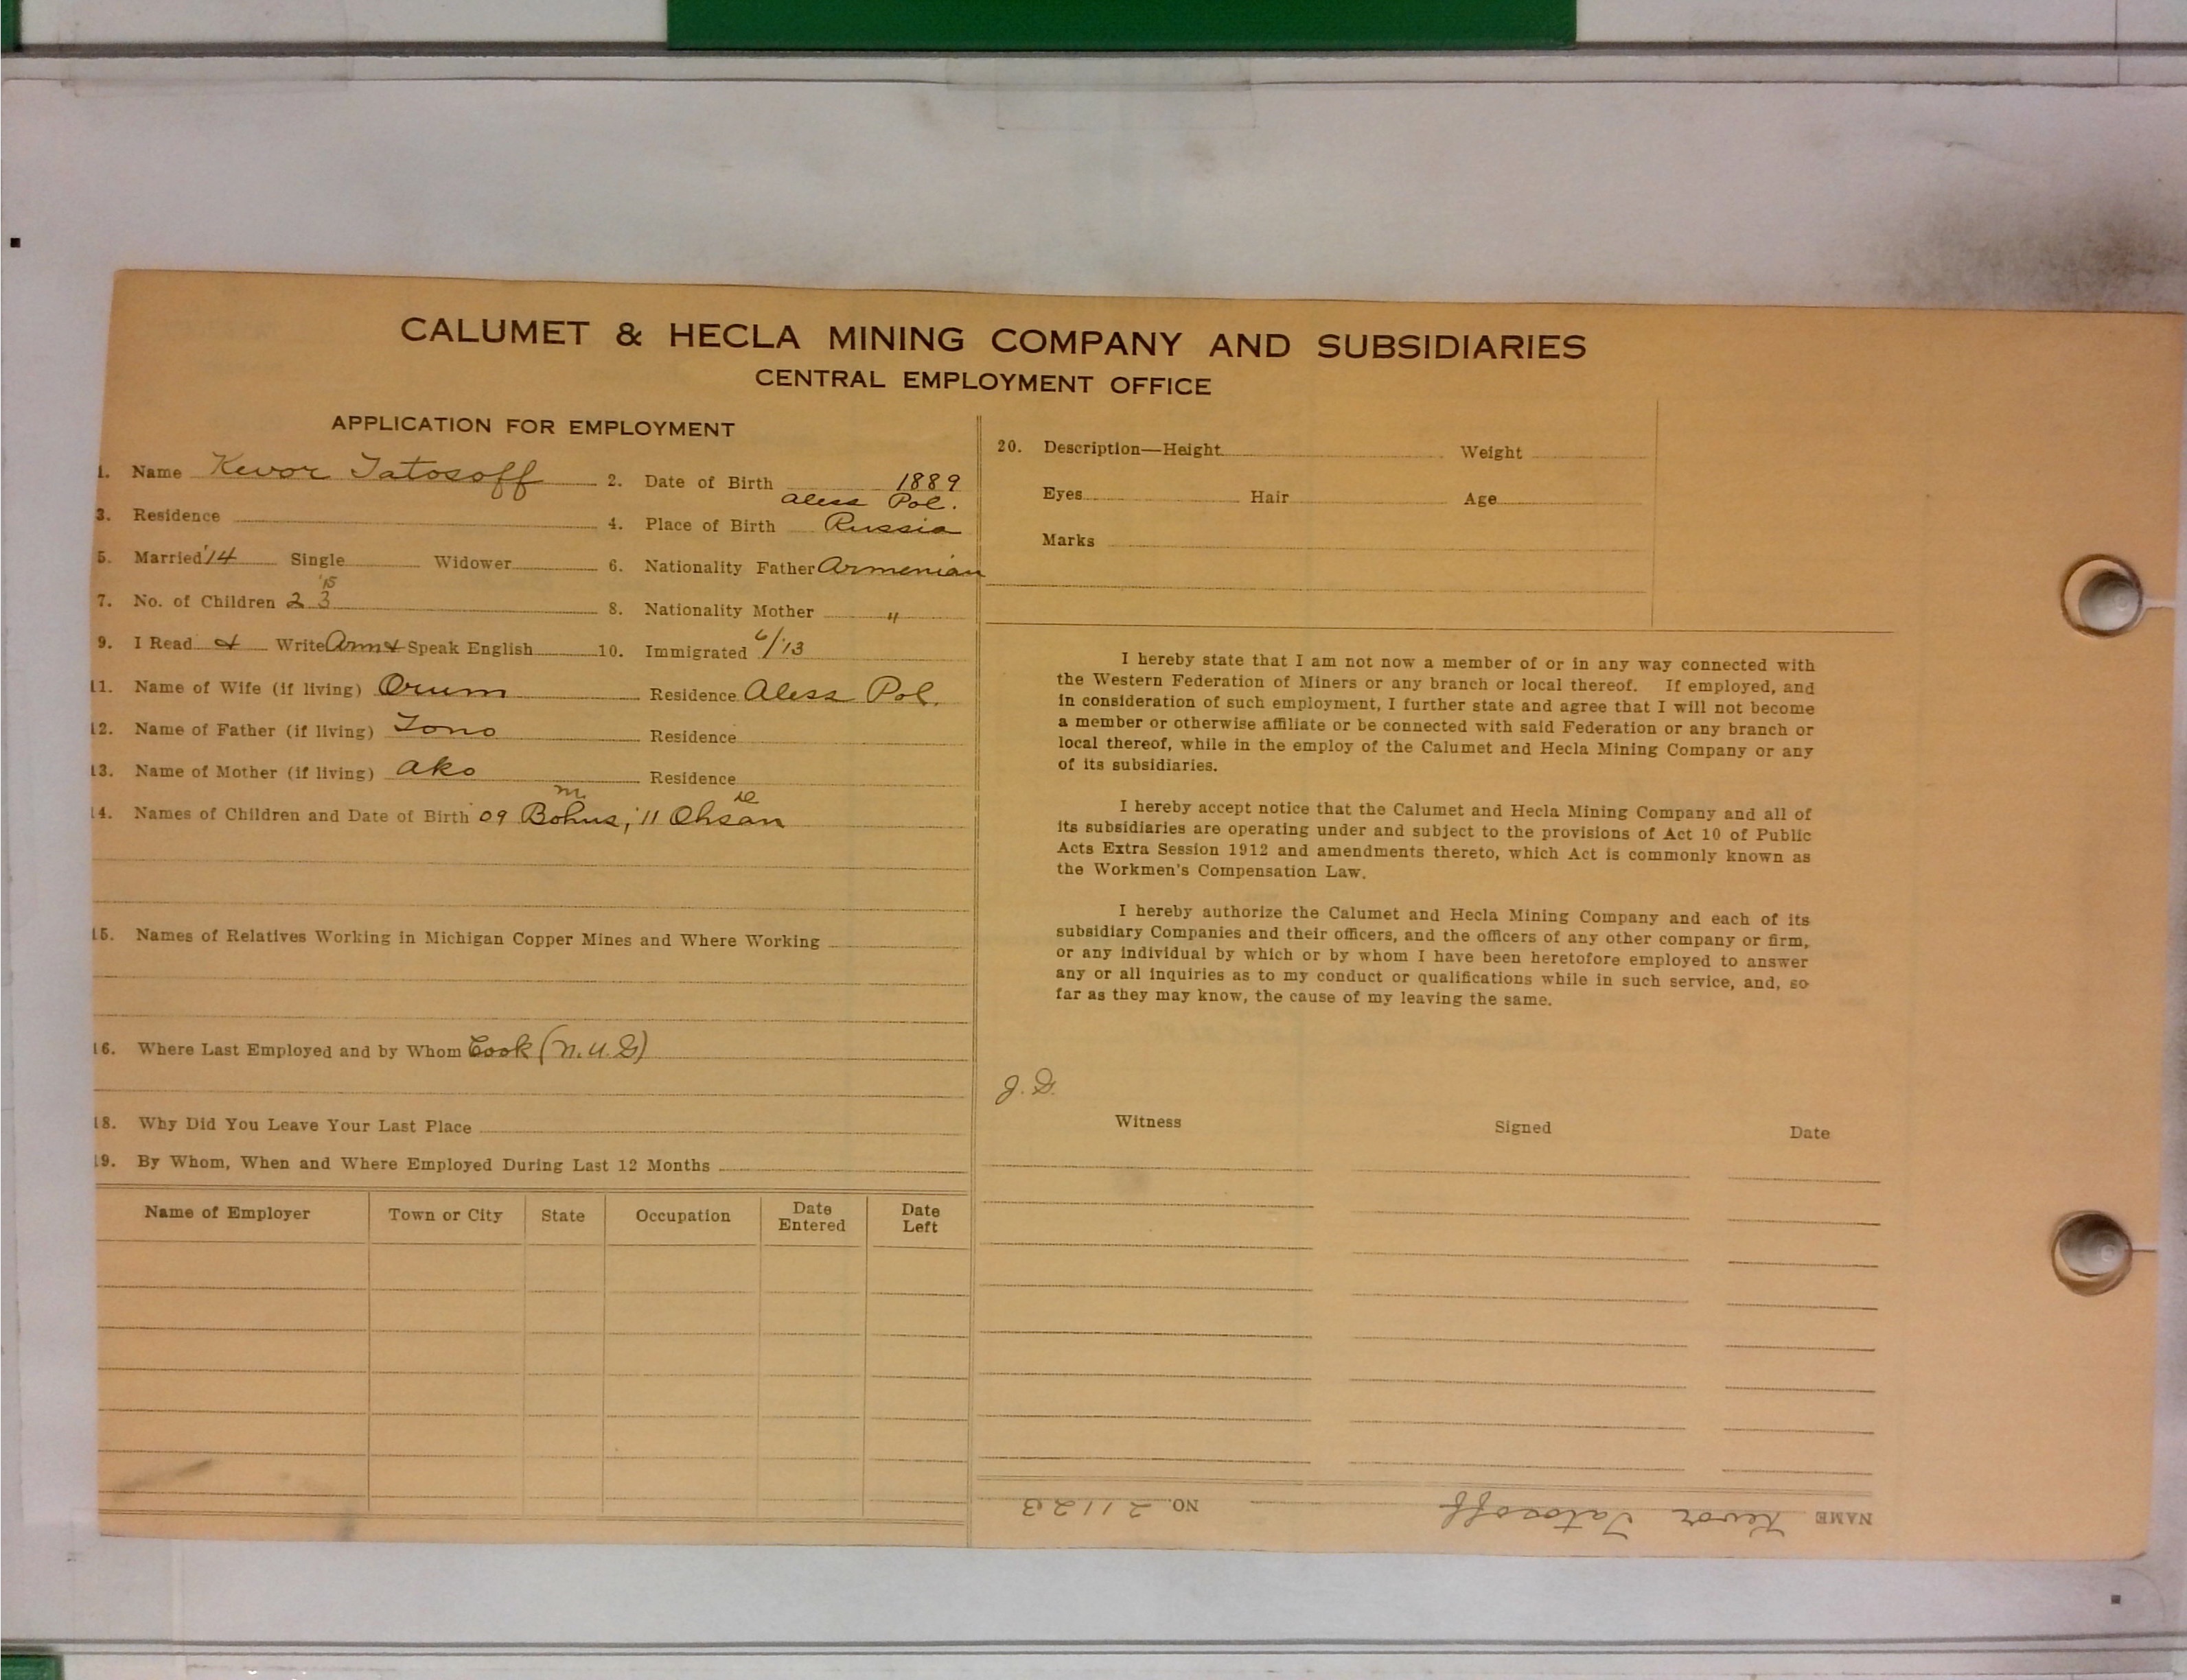 CALUMET & HECLA MINING COMPANY AND SUBSIDIARIES
CENTRAL EMPLOYMENT OFFICE
APPLICATION FOR EMPLOYMENT
1. Name Kevor Tatosoff 2. Date of Birth 1889
Aless Pol.
3. Residence 4. Place of Birth Russia
5. Married '14 Single Widower 6. Nationality Father Armenian
'15
7. No. of Children 2 3 8. Nationality Mother "
9. I Read & Write Arm & Speak English 10. Immigrated 6/'13
11. Name of Wife (if living) Orum Residence Aless Pol.
12. Name of Father (if living) Tono Residence
13. Name of Mother (if living) Ako Residence
m
14. Names of Children and Date of Birth '09 Bohus, '11 Ohsan
15. Names of Relatives Working in Michigan Copper Mines and Where Working
16. Where Last Employed and by Whom Cook (N.U.G)
18. Why Did You Leave Your Last Place
19. By Whom, When and Where Employed During Last 12 Months
Name of Employer Town or City State Occupation Date Entered Date Left
20. Description—Height Weight
Eyes Hair Age
Marks
I hereby state that I am not now a member of or in any way connected with
the Western Federation of Miners or any branch or local thereof. If employed, and
in consideration of such employment, I further state and agree that I will not become
a member or otherwise affiliate or be connected with said Federation or any branch or
local thereof, while in the employ of the Calumet and Hecla Mining Company or any
of its subsidiaries.
I hereby accept notice that the Calumet and Hecla Mining Company and all of
its subsidiaries are operating under and subject to the provisions of Act 10 of Public
Acts Extra Session 1912 and amendments thereto, which Act is commonly known as
the Workmen's Compensation Law.
I hereby authorize the Calumet and Hecla Mining Company and each of its
subsidiary Companies and their officers, and the officers of any other company or firm,
or any individual by which or by whom I have been heretofore employed to answer
any or all inquiries as to my conduct or qualifications while in such service, and, so
far as they may know, the cause of my leaving the same.
J. G.
Witness Signed Date
NAME Kevor Tatosoff NO. 21123